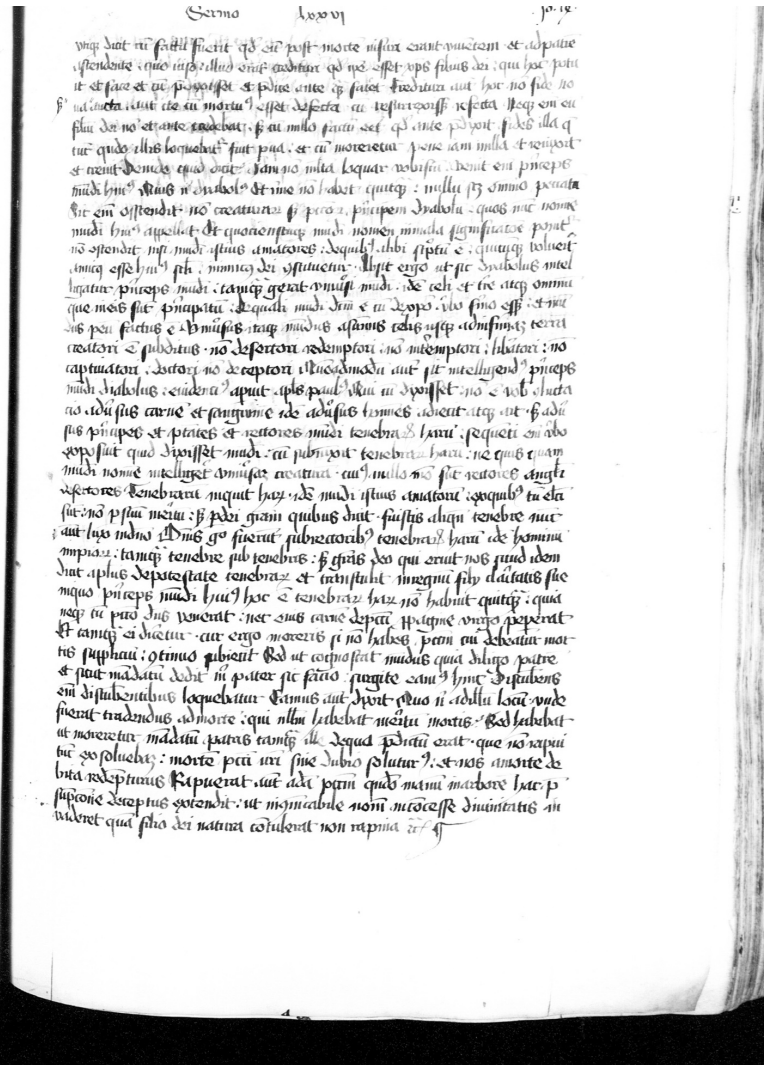 Sermo lxxvi Jo. ix.
utiqz dicit cu factu fuerit qd eu post morte visuri erant viuetem et ad patre
astendente quo viso illud erat credituri qd ipe esset xps filius dei qui hoc potu
it et face et cu predixisset et pdice ante qz facet Credituri aut hoc no fide no
ua aucta aut cte cu mortuus esset defecta cu resurrexisset refecta Neqz em eu
filiu dei no et ante credebat sz cu in illo factu eet qd ante pdixit fides illa q
tuc qudo illis loquebatr fuit pua et cu moreretur pene iam nulla et reuixit
et creuit Deinde quid dicit Iam no multa loquar vobiscu venit em princeps
mudi huius Quis n dyabolus Et in me no habet quitqz nullu scz omnino peccatu
Sic em ostendit no creaturar sz pctor principem dyabolu quos nuc nomine
mudi huius appellat Et quociescuqz mudi nomen in mala significatoe ponitr
no ostendit nisi mudi istius amatores de quibus alibi sptu e quicuqz voluerit
amicus esse huius scli inimicus dei constituetur Absit ergo ut sic dyabolus intel
ligatur princeps mudi tamqz gerat vniusi mudi ide celi et tre atqz omniu
que in eis sut principatu de quali mudi dcm e cu de xpo vbo fmo esset et mu
dus per eu factus e Vniusus itaqz mudus a sumis celis usqz ad infimaz terra
creatori e subditus no desertori redemptori no interemptori libatori no
captiuatori doctori no deceptori Queadmodu aut sit intelligendus princeps
mudi dyabolus euidentius apuit apls paulus Qui cu dixisset no e vob colucta
cio adusus carne et sanguine ide adusus homines adiecit atqz ait sz adu
sus principes et ptates et rectores mudi tenebrar haru sequeti em vbo
exposuit quid dixisset mudi cu subiuxit tenebrar haru ne quis quam
mudi nomine intelliget vniusas creatura cuius nullo mo sut rectores angeli
desertores Tenebraru inquit har ide mudi istius amatoru ex quibus tn elci
sut no p suu meritu sz p dei gram quibus dicit fuistis aliqn tenebre nuc
aut lux in dno Omis go fuerut sub rectoribus tenebrar haru ide hominu
impior tamqz tenebre sub tenebris sz gras deo qui eruit nos sicud idem
dicit aplus de potestate tenebrar et transtulit in regnu filii caritatis sue
in quo princeps mudi huius hoc e tenebrar har no habuit quitqz quia
neqz cu pcto dns venerat nec eius carne de pccti ppagine virgo pepererat
Et tamqz ei dicetur cur ergo moreris si no habes pctm cui debeatur mor
tis suppliciu continuo subiecit Sed ut cognoscat mudus quia diligo patre
et sicut madatu dedit m pater sic facio surgite eamus hinc Discubens
em discubentibus loquebatur Eamus aut dixit Quo n ad illu locu unde
fuerat tradendus ad morte qui nllm habebat meritu mortis Sed habebat
ut moreretur madatu patris tamqz ille de quo pdictu erat que no rapui
tuc exsoluebaz morte pcti uri sine dubio solutur et nos a morte de
bita redepturus Rapuerat aut ada pctm qudo manu in arbore hac p
supcone deceptus extendit ut incomunicabile nom incocesse diuinitatis in
uaderet qua filio dei natura cotulerat non rapina etc